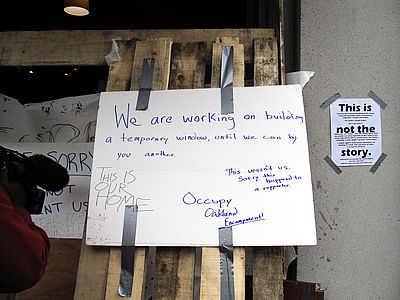 We are working on building
a temporary window, until we can by
you another.
This wasn't us.
Sorry this happened to
a supporter.
THIS IS
OUR
HOME
Occupy
Oakland
Encampment!
SORRY
NOT
NT US
This is
not the
story.